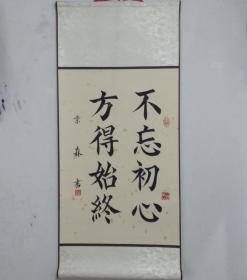 不忘初心
方得始終
崇森书